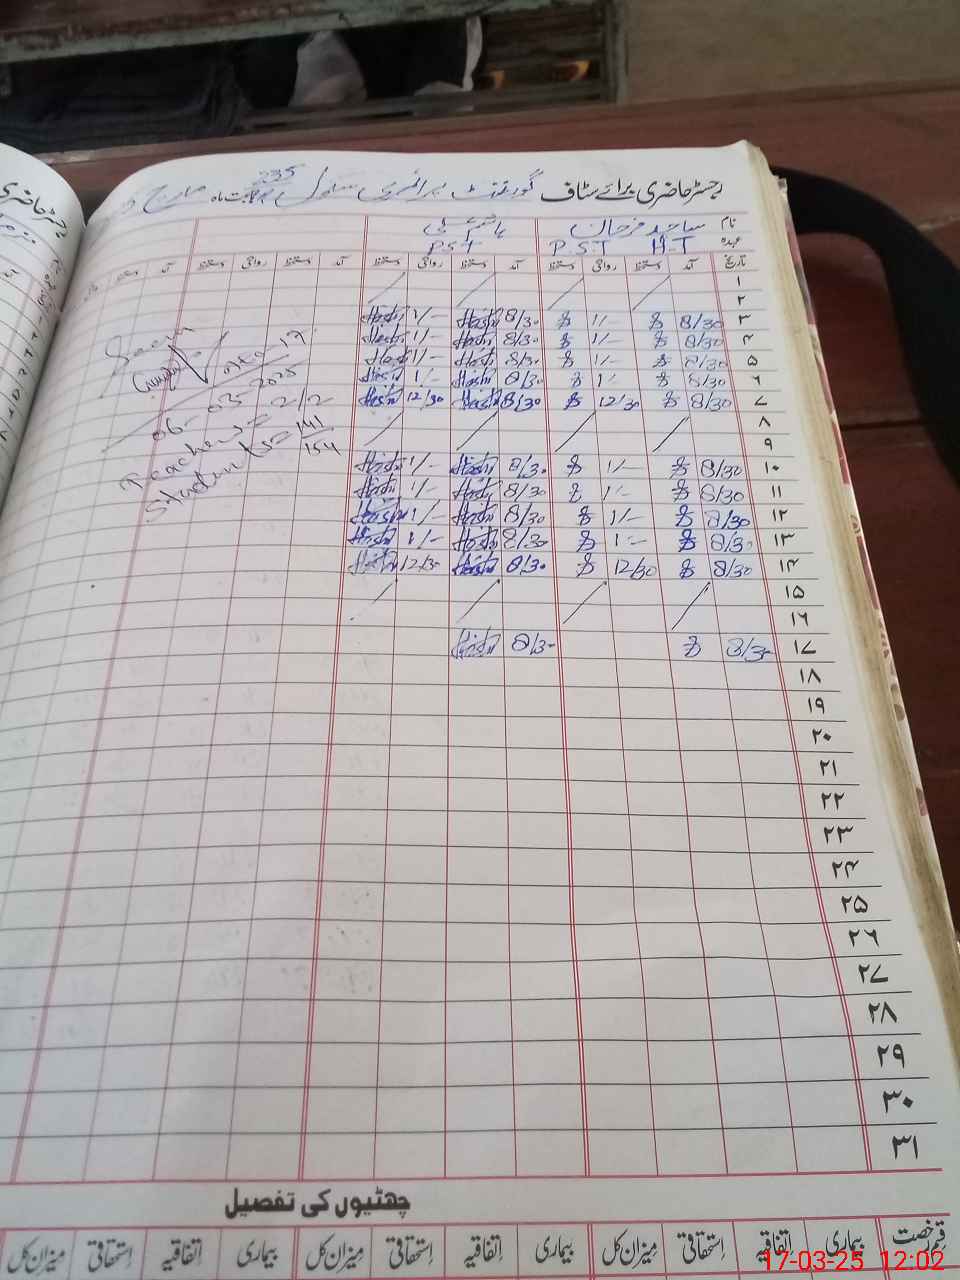 رجسٹر حاضری برائے سٹاف گورنمنٹ پرائمری سکول 235 بابت ماہ مارچ
نام ساجد فرحان ہاشم علی
عہدہ PST H-T PST
تاریخ آمد دستخط روانگی دستخط آمد دستخط روانگی دستخط آمد دستخط روانگی دستخط آمد
۱
۲
۳ 8/30 1/- 8/30 Hashi 1/- Hashi
۴ 8/30 1/- 8/30 Hashi 1/- Hashi
۵ 8/30 1/- 8/30 Hashi 1/- Hashi
۶ 8/30 1/- 8/30 Hashi 1/- Hashi
۷ 8/30 12/30 8/30 Hashi 12/30 Hashi
۸
۹
۱۰ 8/30 1/- 8/30 Hashi 1/- Hashi
۱۱ 8/30 1/- 8/30 Hashi 1/- Hashi
۱۲ 8/30 1/- 8/30 Hashi 1/- Hashi
۱۳ 8/30 1/- 8/30 Hashi 1/- Hashi
۱۴ 8/30 12/30 8/30 Hashi 12/30 Hashi
۱۵
۱۶
۱۷ 8/30 8/30 Hashi
۱۸
۱۹
۲۰
۲۱
۲۲
۲۳
۲۴
۲۵
۲۶
۲۷
۲۸
۲۹
۳۰
۳۱
Seen
06-03-2025
Teachers = 2/2
Students = 141/154
چھٹیوں کی تفصیل
قسم رخصت بیماری اتفاقیہ استحقاقی میزان کل بیماری اتفاقیہ استحقاقی میزان کل بیماری اتفاقیہ استحقاقی میزان کل
17-03-25 12:02